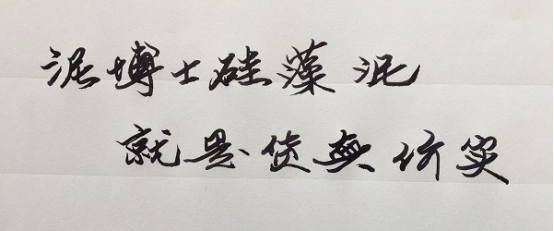 泥博士硅藻泥
就是货真价实